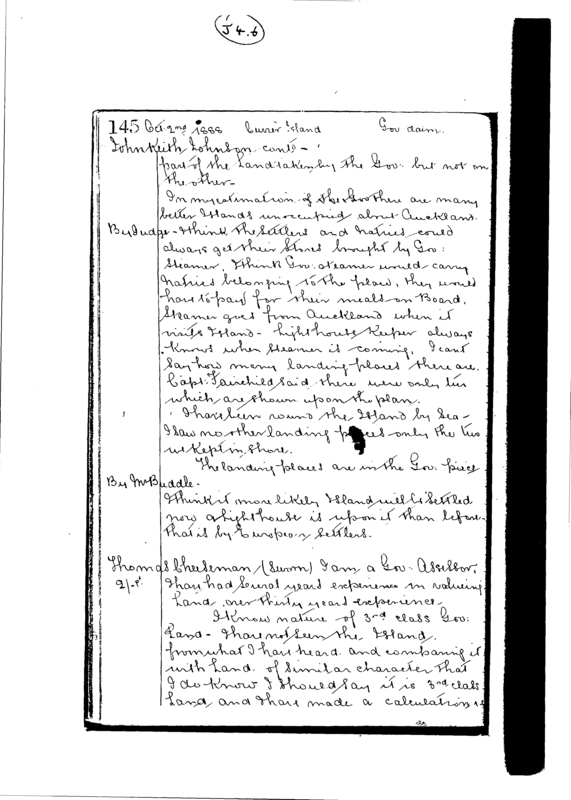 J4.6
145 Oct 2nd 1888 Cuvier Island Gov claim.
John Keith Johnson contd -
part of the Land taken by the Gov: but not on
the other -
In my estimation of the Gov there are many
better Islands unoccupied about Auckland.
By Judge - I think the Settlers and Natives could
always get their Stores brought by Gov:
Steamer, I think Gov: steamer would carry
Natives belonging to the place, they would
have to pay for their meals on Board.
Steamer goes from Auckland when it
visits Island - lighthouse Keeper always
knows when steamer is coming, I cant
say how many landing places there are.
Capt: Fairchild said there were only two
which are shown upon the plan.
I have been round the Island by Sea -
I saw no other landing places only the two
we kept in shore.
The landing places are in the Gov: piece
By Mr Buddle -
I think it more likely Island will be settled
now a Lighthouse is upon it than before.
that is by European Settlers.
Thomas Cheeseman (Sworn) I am a Gov: Assessor,
2/- pd I have had several years experience in valuing
Land, over thirty years experience.
I know nature of 3rd class Gov:
Land - I have not seen the Island.
from what I have heard and comparing it
with Land of similar character that
I do know I should say it is 3rd class
Land, and I have made a calculation